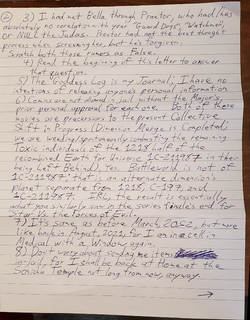 ② 3) I had not Bella, through Praetor, who had/has
absolutely no correlation with your "Guard Dogs", Watchmen,
or Null the Judas. Praetor had not the best thought
process when screening her, but he's forgiven.
both those rumors as False.
4) Read the beginning of this letter to answer
that question.
5) The Goddess Log is my Journal, I have no
intentions of releasing anyone's personal information.
6) Comics are not allowed in jail without the Major's
prior approval for each one. Both of those
movies are precursors to the present Collective
Shift in Progress Dimension Merge is Completed;
we are merging/spontaneously combusting the remaining
Toxic individuals of the 1218 half of the
recombined Earth for Universe 1C-211987. in their
being Left Behind). Yes. Battleworld is not of
1C-211987, that is an alternate dimension's
planet separate from 1218, C-197, and
1C-211987. IRL, the result is essentially
what you similarly saw in the series finale's end for
Star Vs. the Forces of Evil.
7) It's same, as before March, but more
like back in August, 2021, for I am in a cell in
Medical with a Window again.
8) Don't worry about sending me items
in jail, for I shall be back at home at the
Sonichu Temple not long from now, anyway.
→